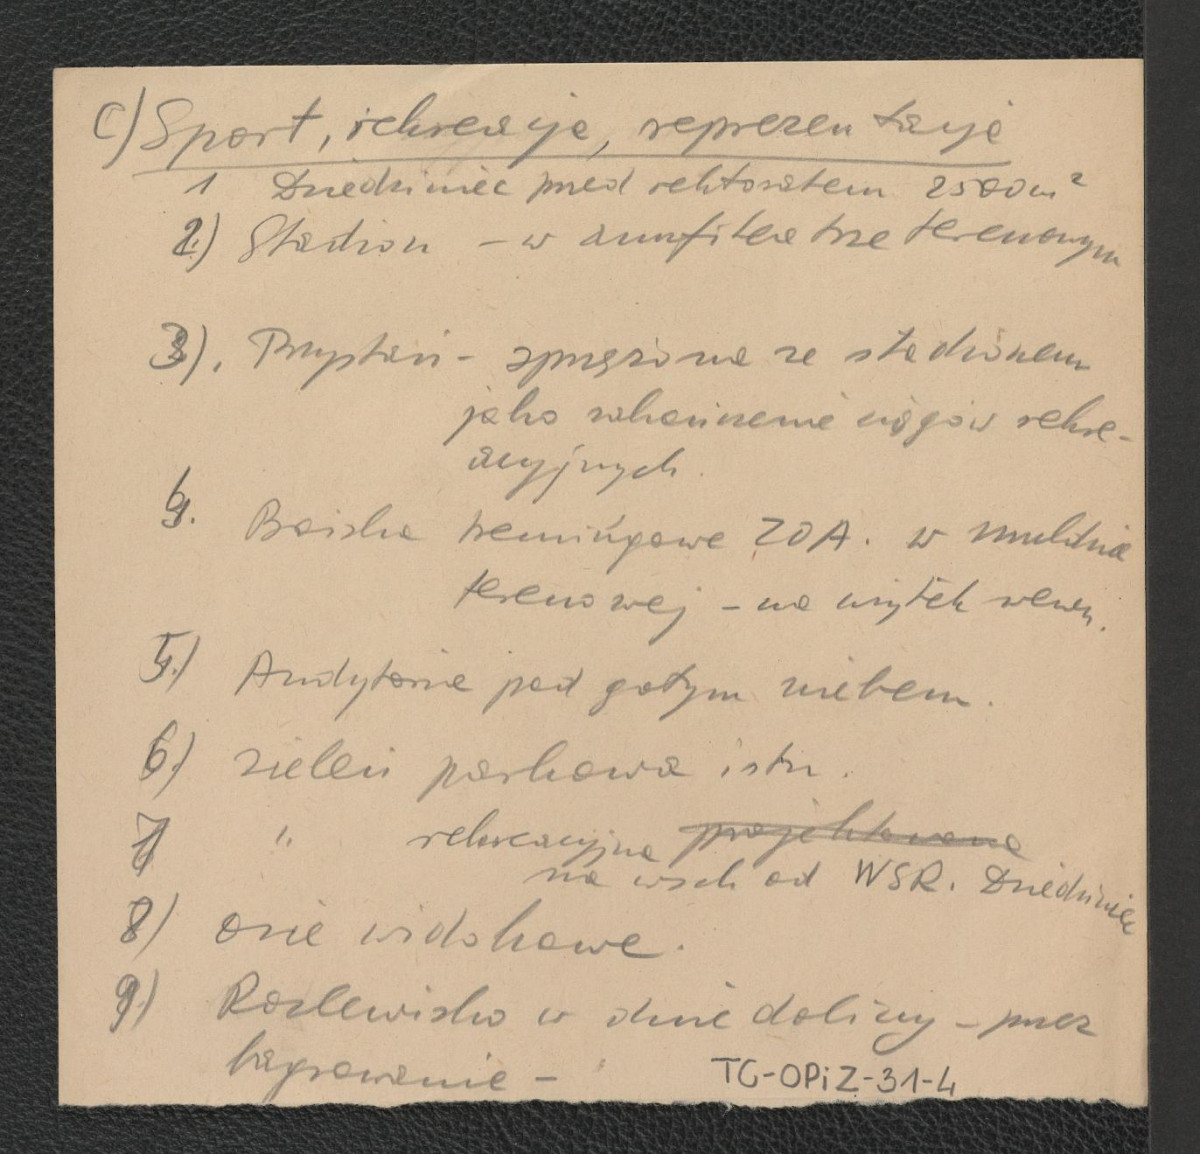 C) Sport, rekreacja, reprezentacja
1 Dziedziniec przed rektoratem 2500 m²
2.) Stadion – w amfiteatrze terenowym
3). Przystań – sprzężona ze stadionem
jako zakończenie ciągów rekre-
acyjnych.
4. Boiska treningowe ZOA. w muldzie
terenowej – na użytek wewn.
5.) Audytoria pod gołym niebem.
6.) zieleń parkowa istn.
7 " rekreacyjna projektowana
na wsch od WSR. Dziedziniec
8) osie widokowe.
9.) Rozlewisko w dnie doliny – przez
bagrowanie –
TG-OPiZ-31-4